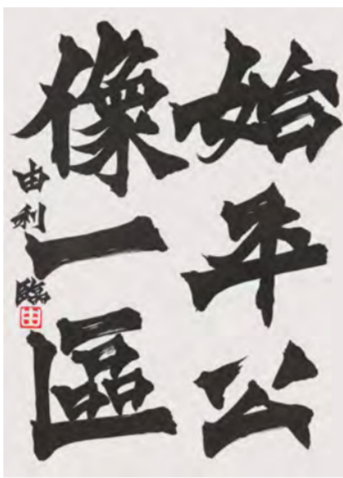 始平公
像一區
由利臨
由